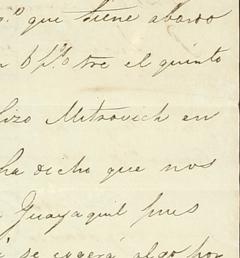 que tiene abordo
el quinto
izo Mitrovich en
ha dicho que nos
Guayaquil pues
se cogerá algo por